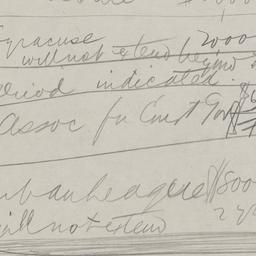 Syracuse 2000
will not extend beyond
period indicated.
Assoc for Const Govt
Urban league $800
will not extend 2 y